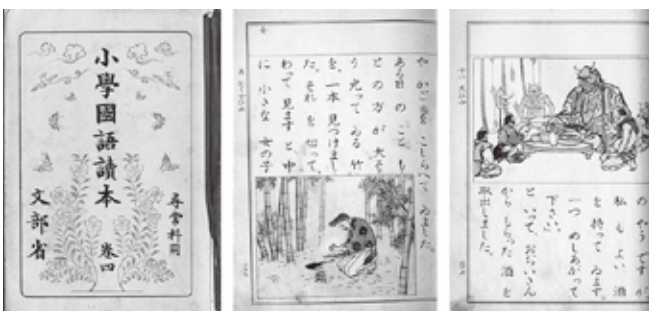 尋常科用
小學國語讀本 巻四
文部省
や かごを こしらへて ゐました。
ある日 の こと も
との 方 が 大そ
う 光って ゐる 竹
を、一本 見つけまし
た。それ を 切って、
わって 見ます と 中
に 小さな 女の子
の やうです が
私 も よい 酒
を 持って ゐます。
一つ めしあがって
下さい。」
と いって、おぢいさん
から もらった 酒 を
取出しました。